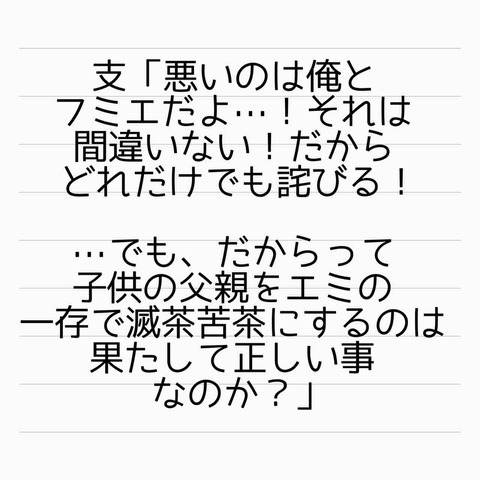 支「悪いのは俺と
フミエだよ…！それは
間違いない！だから
どれだけでも詫びる！
…でも、だからって
子供の父親をエミの
一存で滅茶苦茶にするのは
果たして正しい事
なのか？」